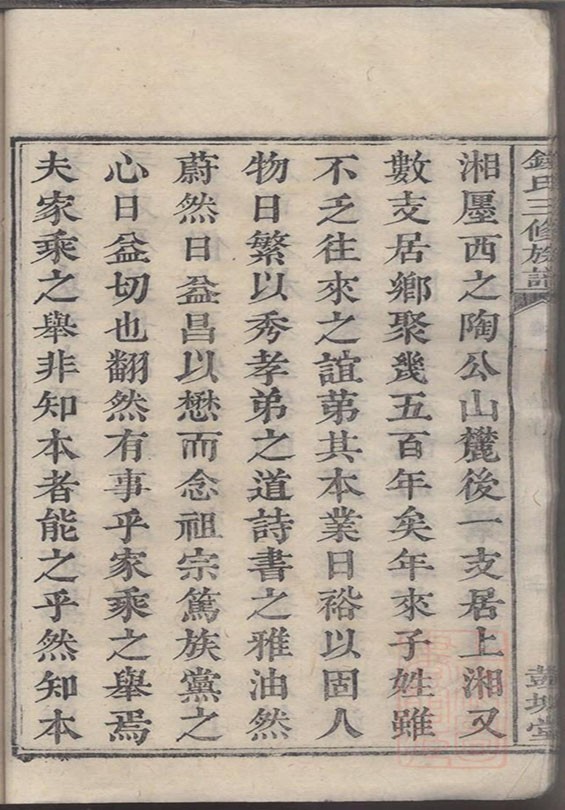 氏三修族譜
湘墨西之陶公山麓後一支居上湘又
數支居鄉聚幾五百年矣年來子姓雖
不乏往來之誼苐其本業日裕以固人
物日繁以秀孝弟之道詩書之雅油然
蔚然日益昌以懋而念祖宗篤族黨之
心日益切也翻然有事乎家乘之舉焉
夫家乘之舉非知本者能之乎然知本